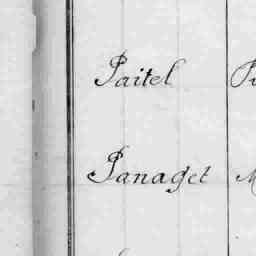 Paitel
Panaget